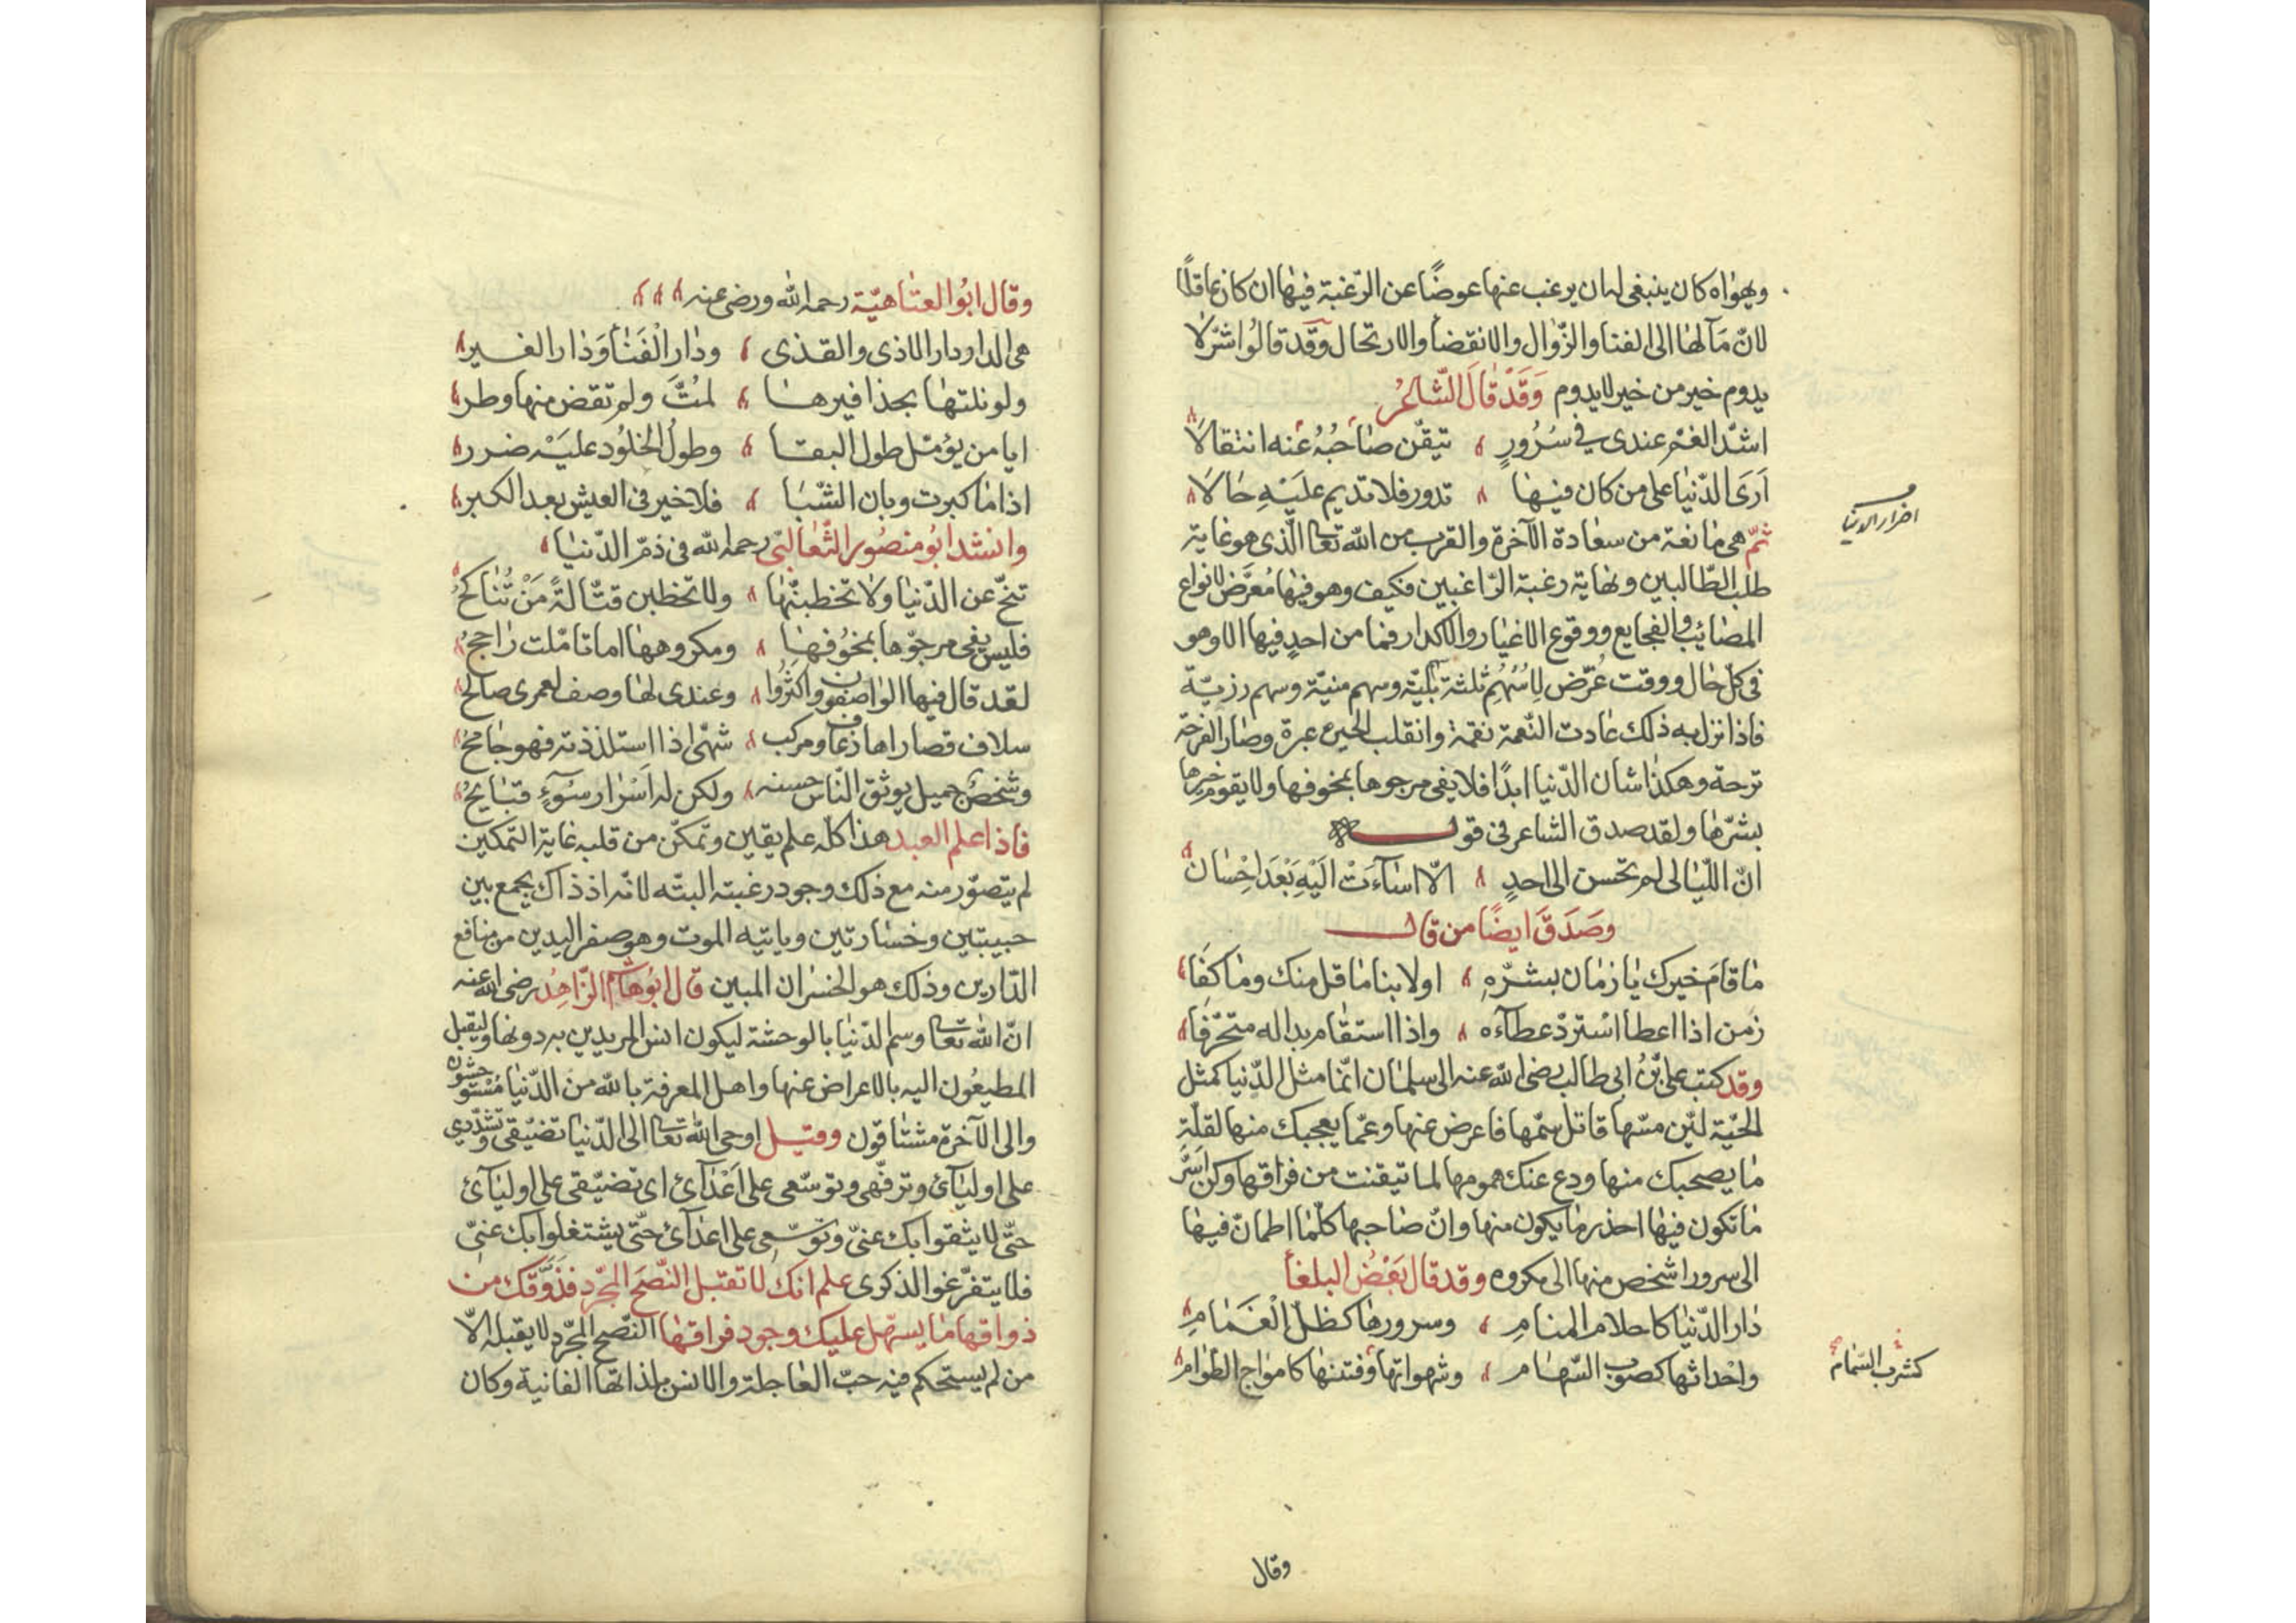 ويهواه كان ينبغى له ان يرغب عنها عوضًا عن الرّغبة فيها ان كان عاقلًا
لانّ مآلها الى الفنا والزّوال والانقضا والارتحال وقد قالوا شرّ لا
يدوم خير من خير لا يدوم وَقَدْ قَالَ الشّاعرُ
اشدّ الغمّ عندى فى سُرُورٍ تيقّن صاحبُهُ عنه انتقالَا
اَرَى الدّنيا على من كان فيها تدور فلا تديم عليَهِ حالَا
ثمّ هى مانعة من سعادة الآخرة والقرب من الله تعالى الّذى هو غاية
اضرار الدنيا
طلب الطّالبين ونهاية رغبة الرّاغبين فكيف وهو فيها مُعرَّض لانواع
المصائب والفجايع ووقوع الاغيار والاكدار فما من احدٍ فيها الا وهو
فى كلّ حال ووقت عُرّض لِاسُهُمٍ ثلثة بليّة وسهم منيّة وسهم رزيّة
فاذا نزل به ذلك عادت النّعمة نقمة وانقلب الحبرة عبرة وصار الفرحة
ترحة وهكذا شان الدّنيا ابدًا فلا يفى مرجوها بمخوفها ولا يقوم خيرها
بشرّها ولقد صدق الشاعر فى قوله
انّ اللّيالى لم تحسن الى احدٍ الّا اسآءَتْ اليَهِ بَعْدَ اِحْسَان
وصَدَقَ ايضًا من قال
ما قامَ خيرك يا زمان بشرّهِ اولا بنا ما قل منك وما كفَا
زمن اذا اعطا اسْتردّ عطآءه واذا استقام بدا له متحرّفا
وقد كتب على بْنُ ابى طالب رضى الله عنه الى سلمان انّما مثل الدّنيا كمثل
الحيّة ليّن مسّها قاتل سمّها فاعرض عنها وعمّا يعجبك منها لقلّة
ما يصحبك منها ودع عنك همومها لما تيقنت من فراقها وكن اَسَرَّ
ما تكون فيها احذر ما يكون منها وانّ صاحبها كلّما اطمانّ فيها
الى سرور اشخص منها الى مكروه وقد قال بَعْضُ البلغأ
دار الدّنيا كاحلام المنامِ وسرورها كظلّ الْغَمَامِ
واحداثها كصوب السّهام وشهواتها وفتنها كامواج الطّوام
كشرب السّمام
وقال
وقال ابُو العتاهيّة رحمه الله ورضى عنه
هى الدار دار الاذى والقذى ودار الْفَنَأ وَدار الغير
ولو نلتها بحذافيرها لمُتَّ ولم تقض منها وطر
ايا من يؤمّل طول البقا وطولُ الخلُود عليَهْ ضرر
اذا ما كبرت وبان الشّبا فلا خير فى العيش بعد الكبر
وانشد ابُو منصُور الثّعالبّى رحمه الله فى ذمّ الدّنيا
تنحّ عن الدّنيا ولا تخطبنّها ولا تخطبن قتّالةً مَنْ تُناكحُ
فليس يفى مرجوّها بمخُوفها ومكروهها اما تامّلت راجحُ
لقد قال فيها الواصفون واكثرُوا وعندى لها وصف لعمرى صالحُ
سلاف قصاراها ذعاف ومركب شهّى اذا استلذذته فهو جامحُ
وشخصٌ جميل يوثق النّاس حسنه ولكن له اَسْرار سُوٓءٍ قبايحُ
فاذا علم العبد هذا كلّه علم يقين وتمكّن من قلبه غاية التمكين
لم يتصوّر منه مع ذلك وجود رغبته البتّه لانّه اذ ذاك يجمع بين
حبيبتين وخسارتين وياتيه الموت وهو صفر اليدين من منافع
الدّارين وذلك هو الخسران المبين قال ابُو هاشم الزّاهِدُ رضى الله عنه
انّ الله تعالى وسم الدّنيا بالوحشة ليكون انس المريدين به دونها وليقبل
المطيعُون اليه بالاعراض عنها واهل المعرفة بالله من الدّنيا مُسْتوحشون
والى الآخرة مشتاقون وقيل اوحى الله تعالى الى الدّنيا تضيّقى وتشدّدى
على اوليآئ وترفّهى وتوسّعى على اَعْدآئ اى تضيّقى على اوليآئ
حتّى لا يثقوا بك عنىّ وتوسّعى على اعدآئ حتّى يشتغلوا بك عنىّ
فلا يتفرّغوا الذكرى علم انك لا تقبل النّصح المجّرد فذوَّقك من
ذواقها ما يسهّل عليك وجود فراقها النّصح المجّرد لا يقبله الّا
من لم يستحكم فيه حبّ العاجلة والانس بلذاتها الفانية وكان